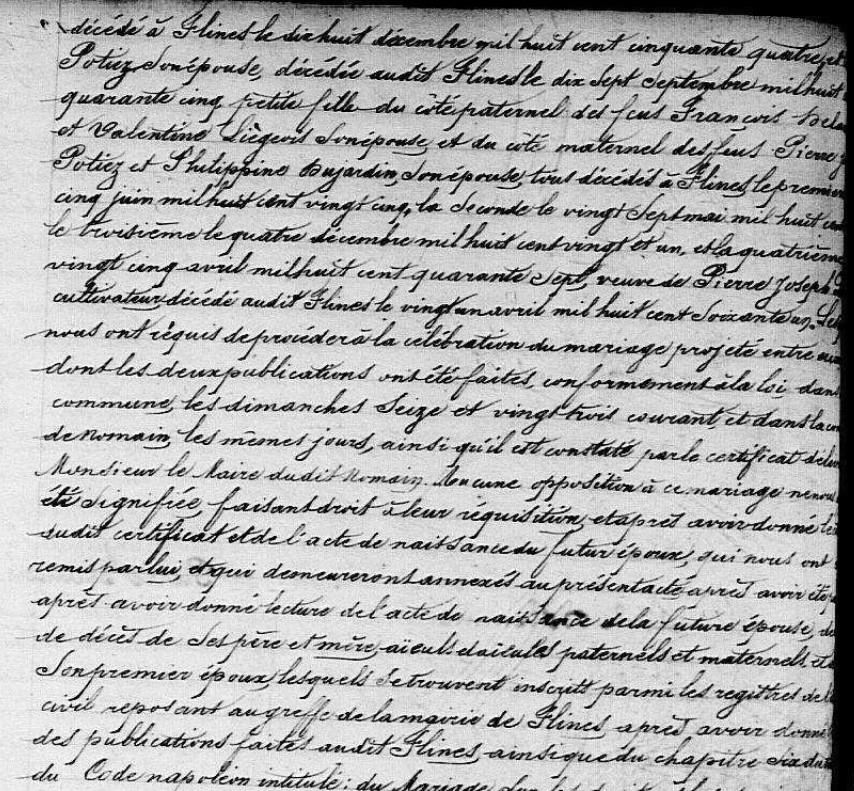 décédé à Flines le dix huit décembre mil huit cent cinquante quatre, et
Potiez son épouse, décédée audit Flines le dix sept septembre mil huit
quarante cinq, petite fille du côté paternel des feus François
et Valentine Liégeois son épouse, et du côté maternel des feus Pierre
Potiez et Philippine Dujardin, son épouse, tous décédés à Flines le premier
cinq juin mil huit cent vingt cinq, la seconde le vingt sept mai mil huit
le troisième le quatre décembre mil huit cent vingt et un, et la quatrième
vingt cinq avril mil huit cent quarante sept, veuve de Pierre Joseph
cultivateur décédé audit Flines le vingt un avril mil huit cent soixante un.
nous ont requis de procéder à la célébration du mariage projeté entre eux
dont les deux publications ont été faites, conformement à la loi, dans
commune, les dimanches seize et vingt trois courant, et dans la
de Nomain, les mêmes jours, ainsi qu'il est constaté par le certificat
Monsieur le Maire dudit Nomain. Aucune opposition à ce mariage ne nous
été signifiée, faisant droit à leur réquisition, et après avoir donné
dudit certificat et de l'acte de naissance du futur époux, qui nous ont
remis par lui, et qui demeureront annexés au présent acte après avoir été
après avoir donné lecture de l'acte de naissance de la future épouse,
de décès de ses père et mère, aïeuls et aïeules paternels et maternels, et
son premier époux lesquels se trouvent inscrits parmi les registres de
civil reposant au greffe de la mairie de Flines, après avoir donné
des publications faites audit Flines, ainsi que du chapitre six du
du Code napoléon intitulé : du Mariage